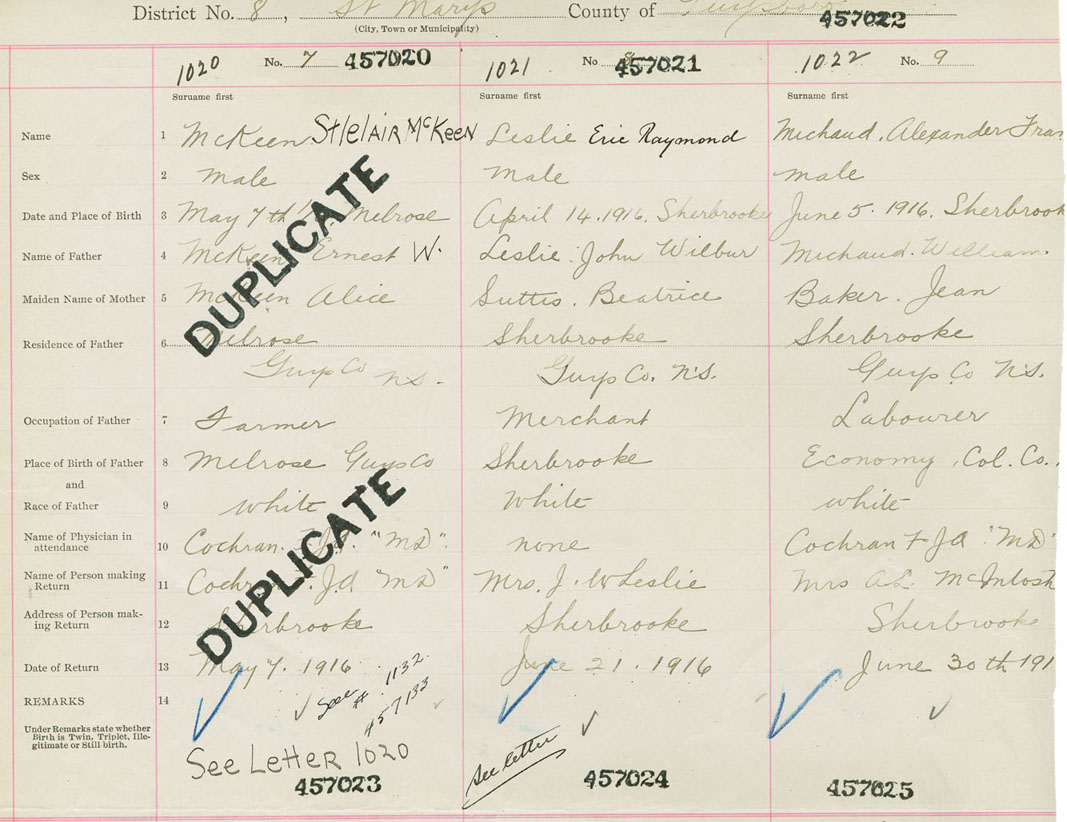 District No. 8, St Marys County of
(City, Town or Municipality)
457022
1020 No. 7 457020 1021 No 457021 1022 No. 9
Surname first Surname first Surname first
Name 1 McKeen St/clAIR McKEEN Leslie Eric Raymond Michaud. Alexander Fran
Sex 2 male male male
Date and Place of Birth 3 May 7th Melrose April 14. 1916. Sherbrooke June 5. 1916. Sherbrook
Name of Father 4 McKeen Ernest W. Leslie. John Wilbur Michaud. William.
Maiden Name of Mother 5 McKeen Alice Suttis. Beatrice Baker. Jean
Residence of Father 6 Melrose Sherbrooke Sherbrooke
Guys Co N.S. Guys Co. N.S. Guys Co N.S.
Occupation of Father 7 Farmer Merchant Labourer
Place of Birth of Father 8 Melrose Guys Co Sherbrooke Economy, Col. Co.
and
Race of Father 9 white White white
Name of Physician in
attendance 10 Cochran. "MD". none Cochran F JA "MD"
Name of Person making
Return 11 Cochran JA "MD" Mrs. J. W Leslie Mrs A.L. McIntosh
Address of Person mak-
ing Return 12 Sherbrooke Sherbrooke Sherbrooke
Date of Return 13 May 7. 1916 June 21. 1916 June 30th 191
REMARKS 14 See # 1132.
457133
Under Remarks state whether
Birth is Twin, Triplet, Ille-
gitimate or Still birth.
See LetteR 1020 see letter
457023 457024 457025
DUPLICATE
DUPLICATE